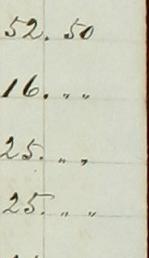 52. 50
16. " "
25. " "
25. " "